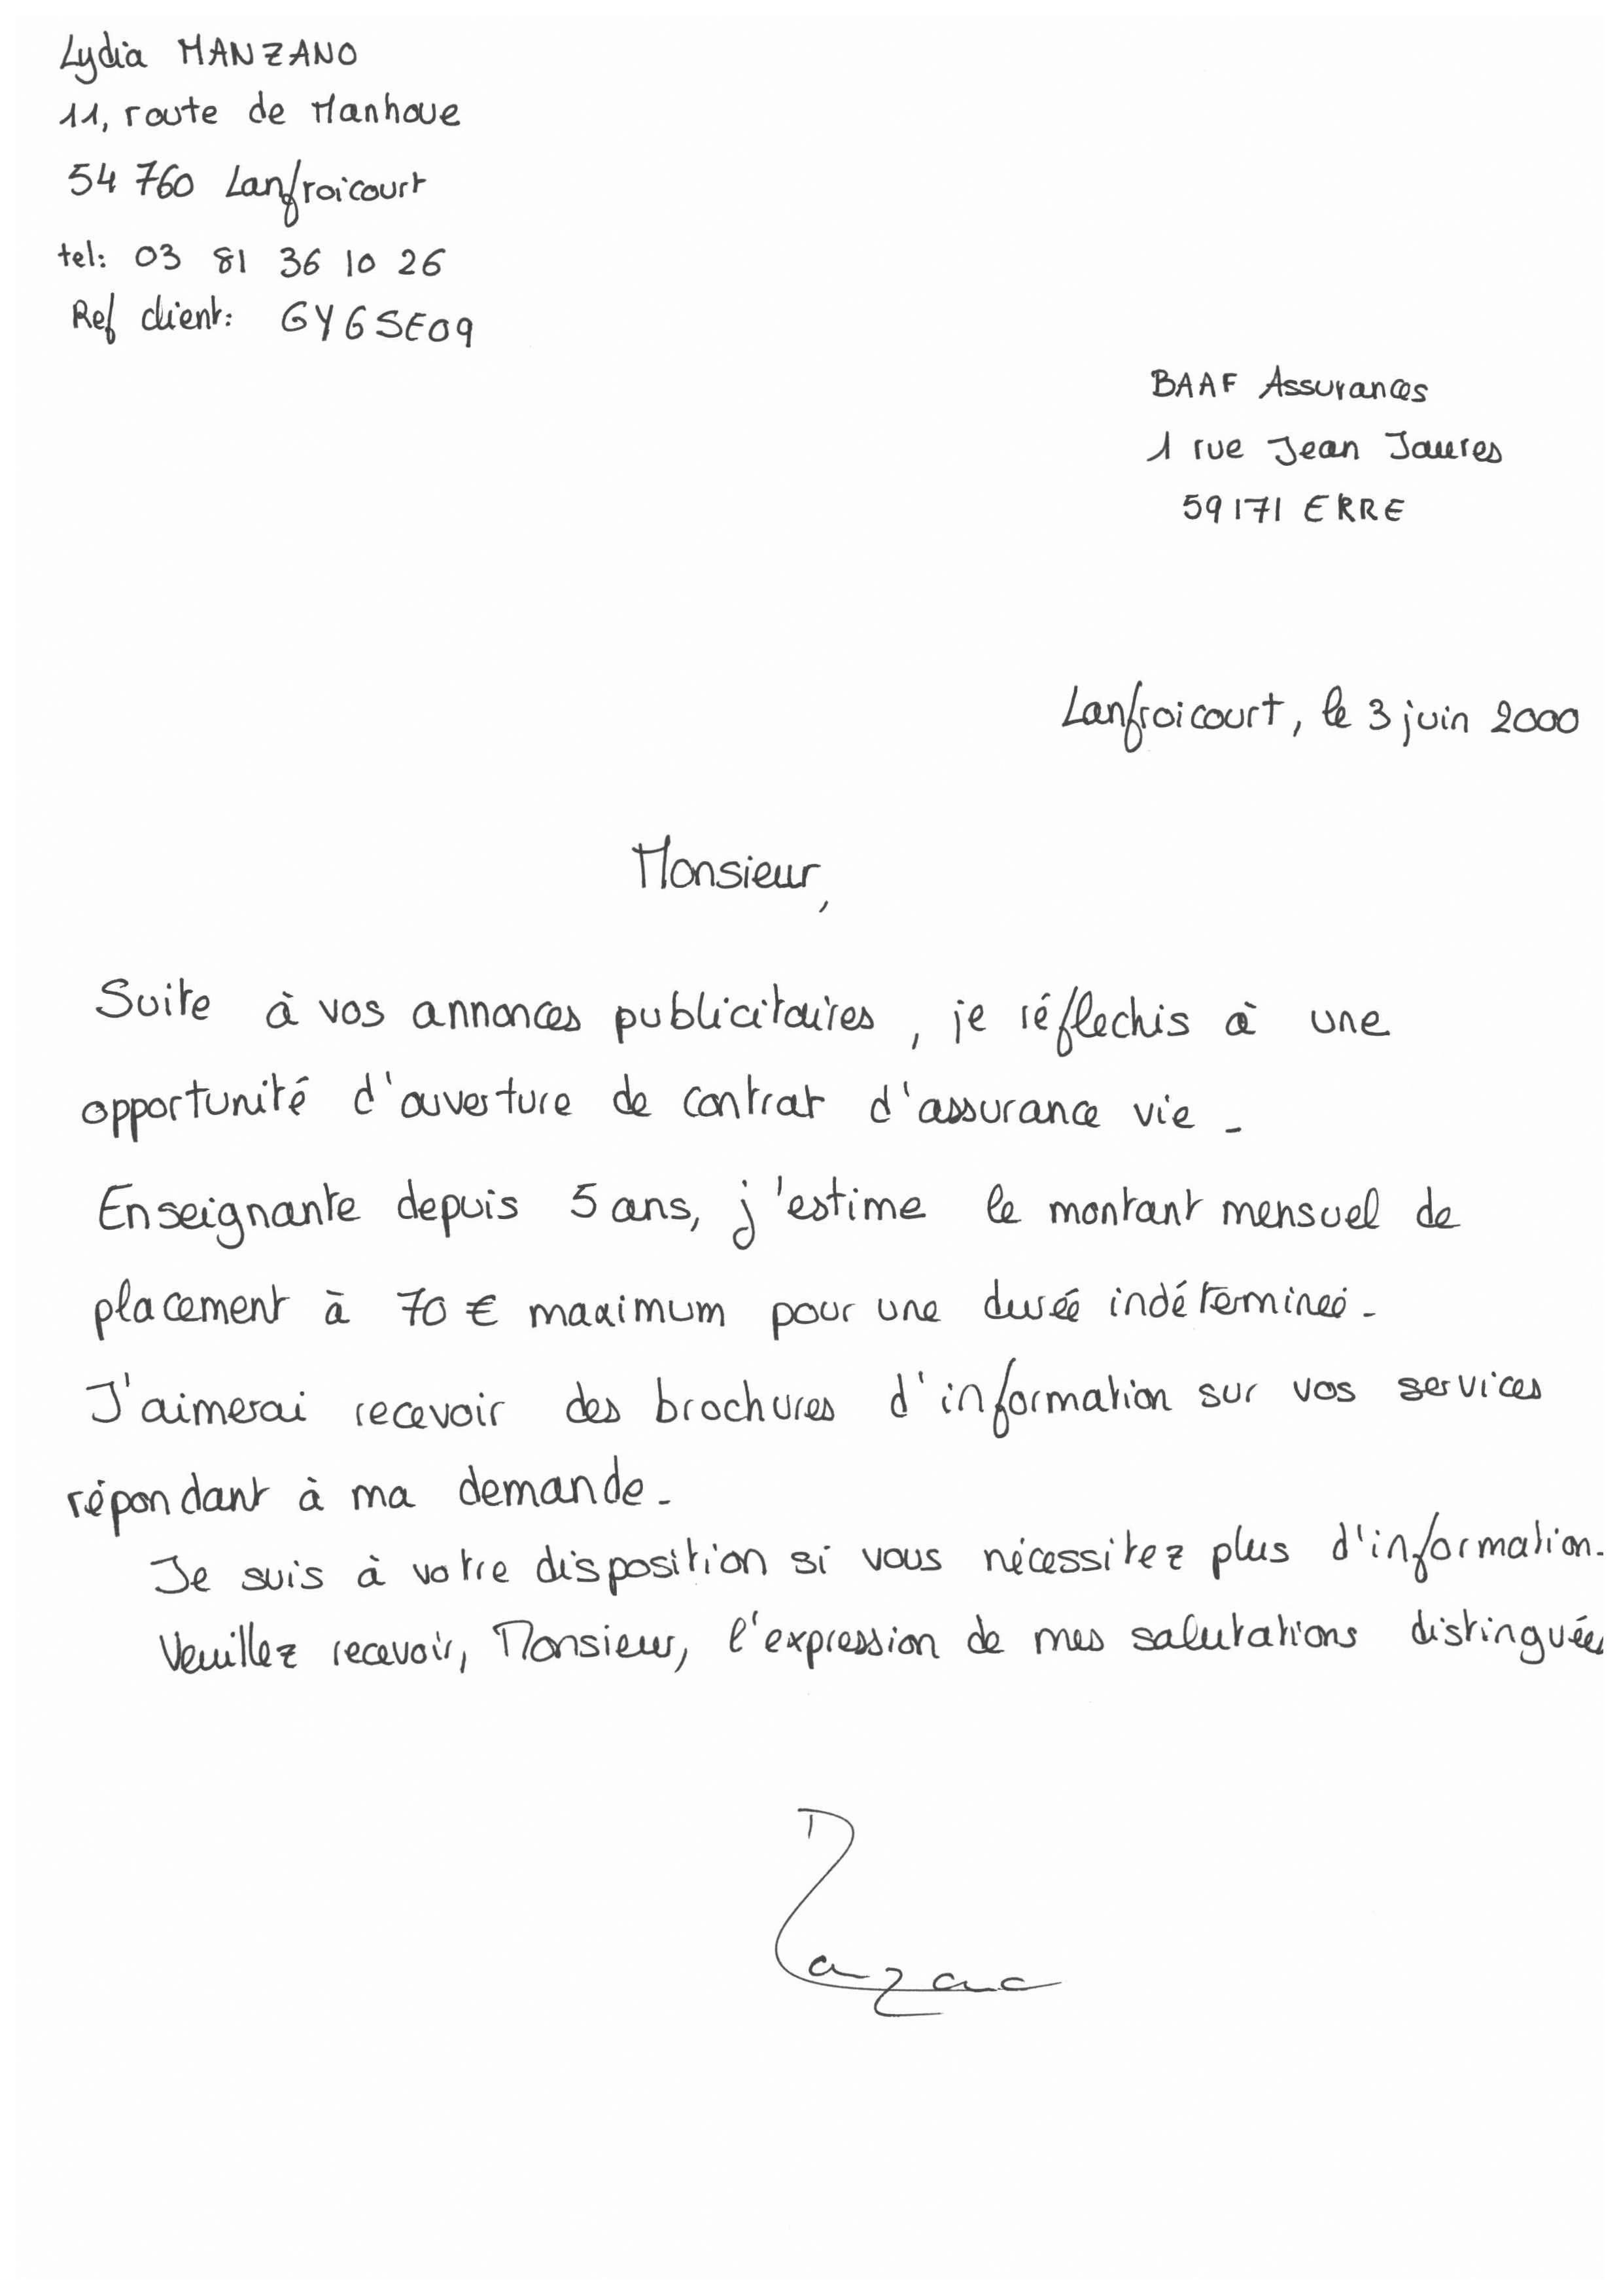 Lydia MANZANO
11, route de Manhoue
54 760 Lanfroicourt
tel: 03 81 36 10 26
Ref client: GYGSE09
BAAF Assurances
1 rue Jean Jaures
59171 ERRE
Lanfroicourt, le 3 juin 2000
Monsieur,
Suite à vos annonces publicitaires, je réflechis à une
opportunité d'ouverture de contrat d'assurance vie.
Enseignante depuis 5 ans, j'estime le montant mensuel de
placement à 70 € maximum pour une durée indéterminée.
J'aimerai recevoir des brochures d'information sur vos services
répondant à ma demande.
Je suis à votre disposition si vous nécessitez plus d'information.
Veuillez recevoir, Monsieur, l'expression de mes salutations distinguées
Manzano